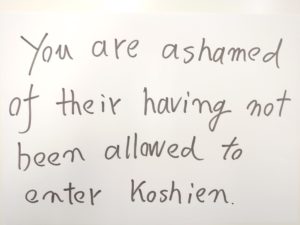 You are ashamed
of their having not
been allowed to
enter Koshien.